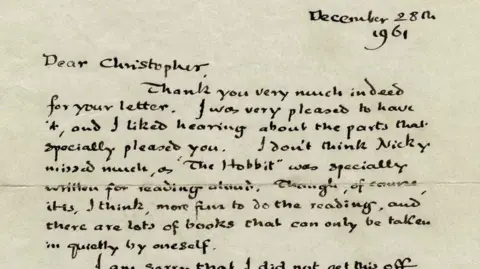 December 28th
1961
Dear Christopher,
Thank you very much indeed
for your letter. I was very pleased to have
it, and I liked hearing about the parts that
specially pleased you. I don't think Nicky
missed much, as "The Hobbit" was specially
written for reading aloud. Though, of course,
it is, I think, more fun to do the reading, and
there are lots of books that can only be taken
in quietly by oneself.
I am sorry that I did not get this off